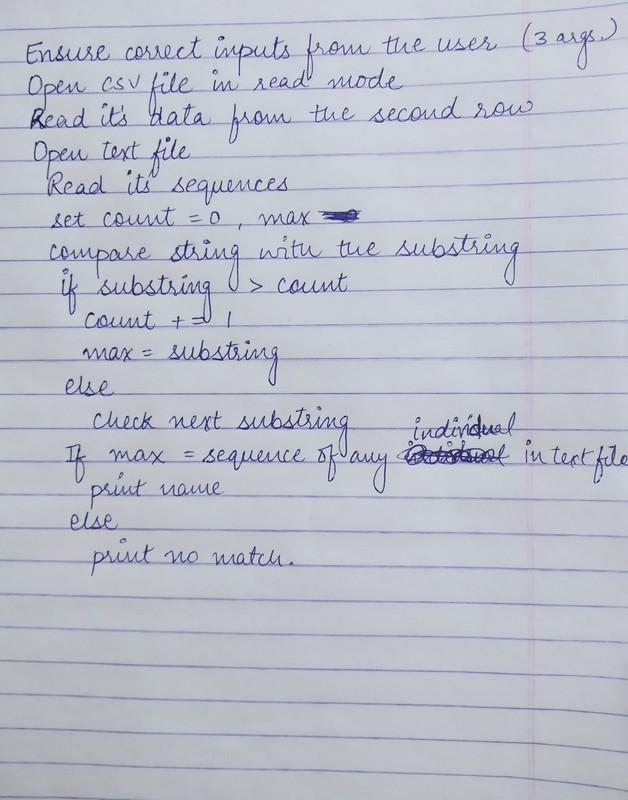 Ensure correct inputs from the user (3 args.)
Open csv file in read mode
Read it's data from the second row
Open text file
Read its sequences
set count = 0, max
compare string with the substring
if substring > count
count += 1
max = substring
else
check next substring
If max = sequence of any individual in text file
print name
else
print no match.